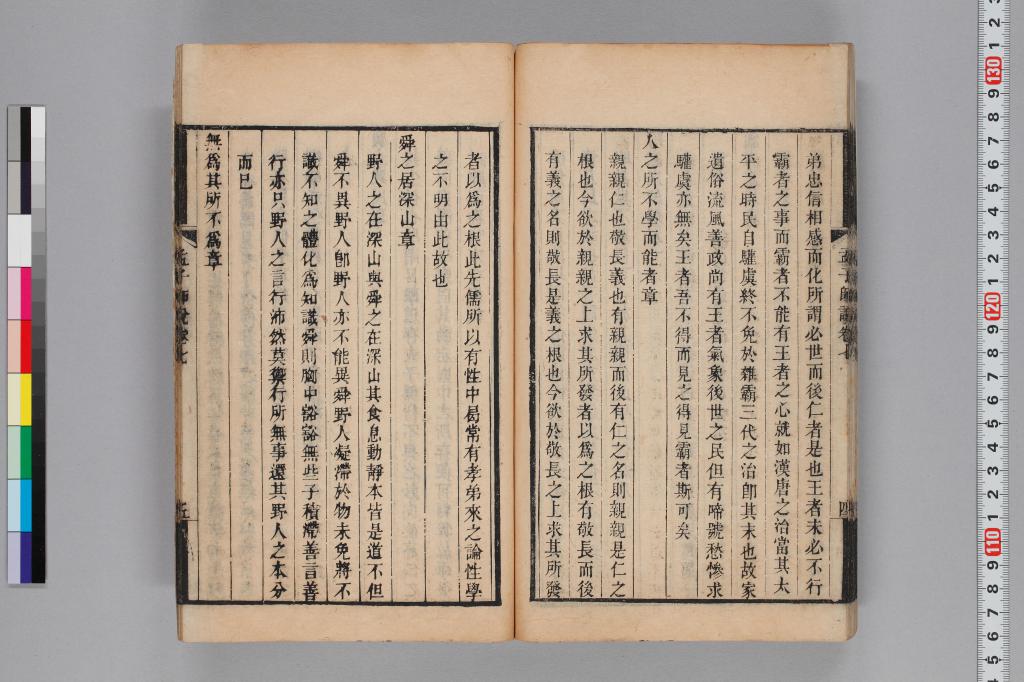 弟忠信相感而化所謂必世而後仁者是也王者未必不行
霸者之事而霸者不能有王者之心就如漢唐之治當其太
平之時民自驩虞終不免於雜霸三代之治卽其末也故家
遺俗流風善政尚有王者氣象後世之民但有啼號愁慘求
驩虞亦無矣王者吾不得而見之得見霸者斯可矣
人之所不學而能者章
親親仁也敬長義也有親親而後有仁之名則親親是仁之
根也今欲於親親之上求其所發者以爲之根有敬長而後
有義之名則敬長是義之根也今欲於敬長之上求其所發
孟子師說卷七
四
者以爲之根此先儒所以有性中曷嘗有孝弟來之論性學
之不明由此故也
舜之居深山章
野人之在深山與舜之在深山其食息動靜本皆是道不但
舜不異野人卽野人亦不能異舜野人凝滯於物未免將不
識不知之體化爲知識舜則胸中豁豁無些子積滯善言善
行亦只野人之言行沛然莫禦行所無事還其野人之本分
而已
無爲其所不爲章
孟子師說卷七
五
130
120
110